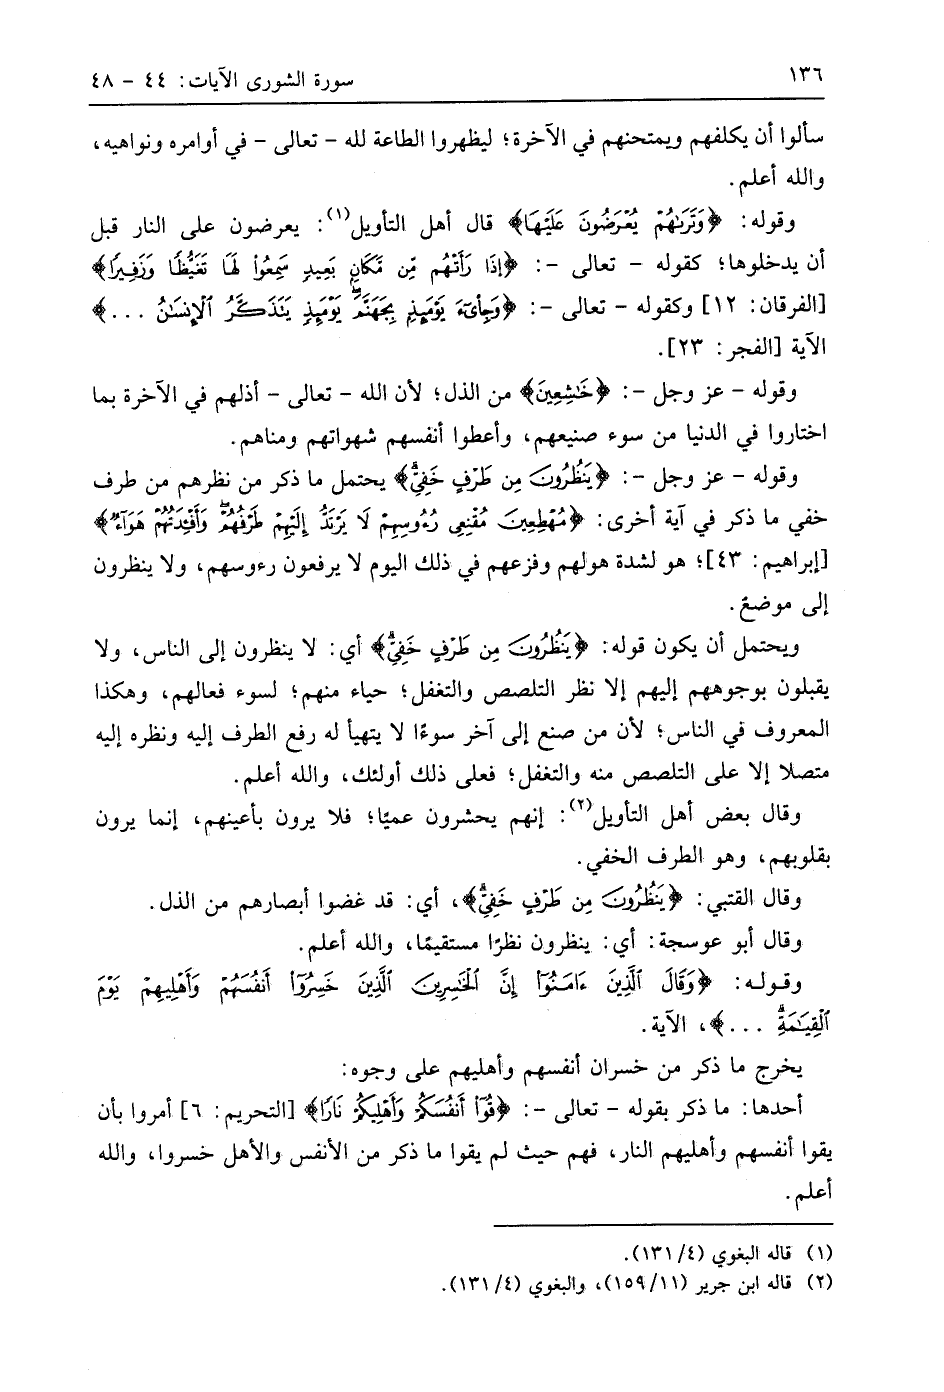 ١٣٦
سورة الشورى الآيات: ٤٤ - ٤٨
سألوا أن يكلفهم ويمتحنهم في الآخرة؛ ليظهروا الطاعة لله - تعالى - في أوامره ونواهيه،
والله أعلم.
وقوله: ﴿وَتَرَىٰهُمْ يُعْرَضُونَ عَلَيْهَا﴾ قال أهل التأويل(١): يعرضون على النار قبل
أن يدخلوها؛ كقوله - تعالى -: ﴿إِذَا رَأَتْهُم مِّن مَّكَانٍ بَعِيدٍ سَمِعُواْ لَهَا تَغَيُّظًا وَزَفِيرًا﴾
[الفرقان: ١٢] وكقوله - تعالى -: ﴿وَجِاْىٓءَ يَوْمَئِذٍ بِجَهَنَّمَۚ يَوْمَئِذٍ يَتَذَكَّرُ ٱلْإِنسَٰنُ ...﴾
الآية [الفجر: ٢٣].
وقوله - عز وجل -: ﴿خَٰشِعِينَ﴾ من الذل؛ لأن الله - تعالى - أذلهم في الآخرة بما
اختاروا في الدنيا من سوء صنيعهم، وأعطوا أنفسهم شهواتهم ومناهم.
وقوله - عز وجل -: ﴿يَنظُرُونَ مِن طَرْفٍ خَفِيٍّۗ﴾ يحتمل ما ذكر من نظرهم من طرف
خفي ما ذكر في آية أخرى: ﴿مُهْطِعِينَ مُقْنِعِى رُءُوسِهِمْ لَا يَرْتَدُّ إِلَيْهِمْ طَرْفُهُمْۖ وَأَفْـِٔدَتُهُمْ هَوَآءٌ﴾
[إبراهيم: ٤٣]؛ هو لشدة هولهم وفزعهم في ذلك اليوم لا يرفعون رءوسهم، ولا ينظرون
إلى موضعٍ.
ويحتمل أن يكون قوله: ﴿يَنظُرُونَ مِن طَرْفٍ خَفِيٍّۗ﴾ أي: لا ينظرون إلى الناس، ولا
يقبلون بوجوههم إليهم إلا نظر التلصص والتغفل؛ حياء منهم؛ لسوء فعالهم، وهكذا
المعروف في الناس؛ لأن من صنع إلى آخر سوءًا لا يتهيأ له رفع الطرف إليه ونظره إليه
متصلا إلا على التلصص منه والتغفل؛ فعلى ذلك أولئك، والله أعلم.
وقال بعض أهل التأويل(٢): إنهم يحشرون عميًا؛ فلا يرون بأعينهم، إنما يرون
بقلوبهم، وهو الطرف الخفي.
وقال القتبي: ﴿يَنظُرُونَ مِن طَرْفٍ خَفِيٍّۗ﴾، أي: قد غضوا أبصارهم من الذل.
وقال أبو عوسجة: أي: ينظرون نظرًا مستقيمًا، والله أعلم.
وقوله: ﴿وَقَالَ ٱلَّذِينَ ءَامَنُوٓاْ إِنَّ ٱلْخَٰسِرِينَ ٱلَّذِينَ خَسِرُوٓاْ أَنفُسَهُمْ وَأَهْلِيهِمْ يَوْمَ
ٱلْقِيَٰمَةِۗ ...﴾، الآية.
يخرج ما ذكر من خسران أنفسهم وأهليهم على وجوه:
أحدها: ما ذكر بقوله - تعالى -: ﴿قُوٓاْ أَنفُسَكُمْ وَأَهْلِيكُمْ نَارًا﴾ [التحريم: ٦] أمروا بأن
يقوا أنفسهم وأهليهم النار، فهم حيث لم يقوا ما ذكر من الأنفس والأهل خسروا، والله
أعلم.
(١) قاله البغوي (١٣١/٤).
(٢) قاله ابن جرير (١٥٩/١١)، والبغوي (١٣١/٤).